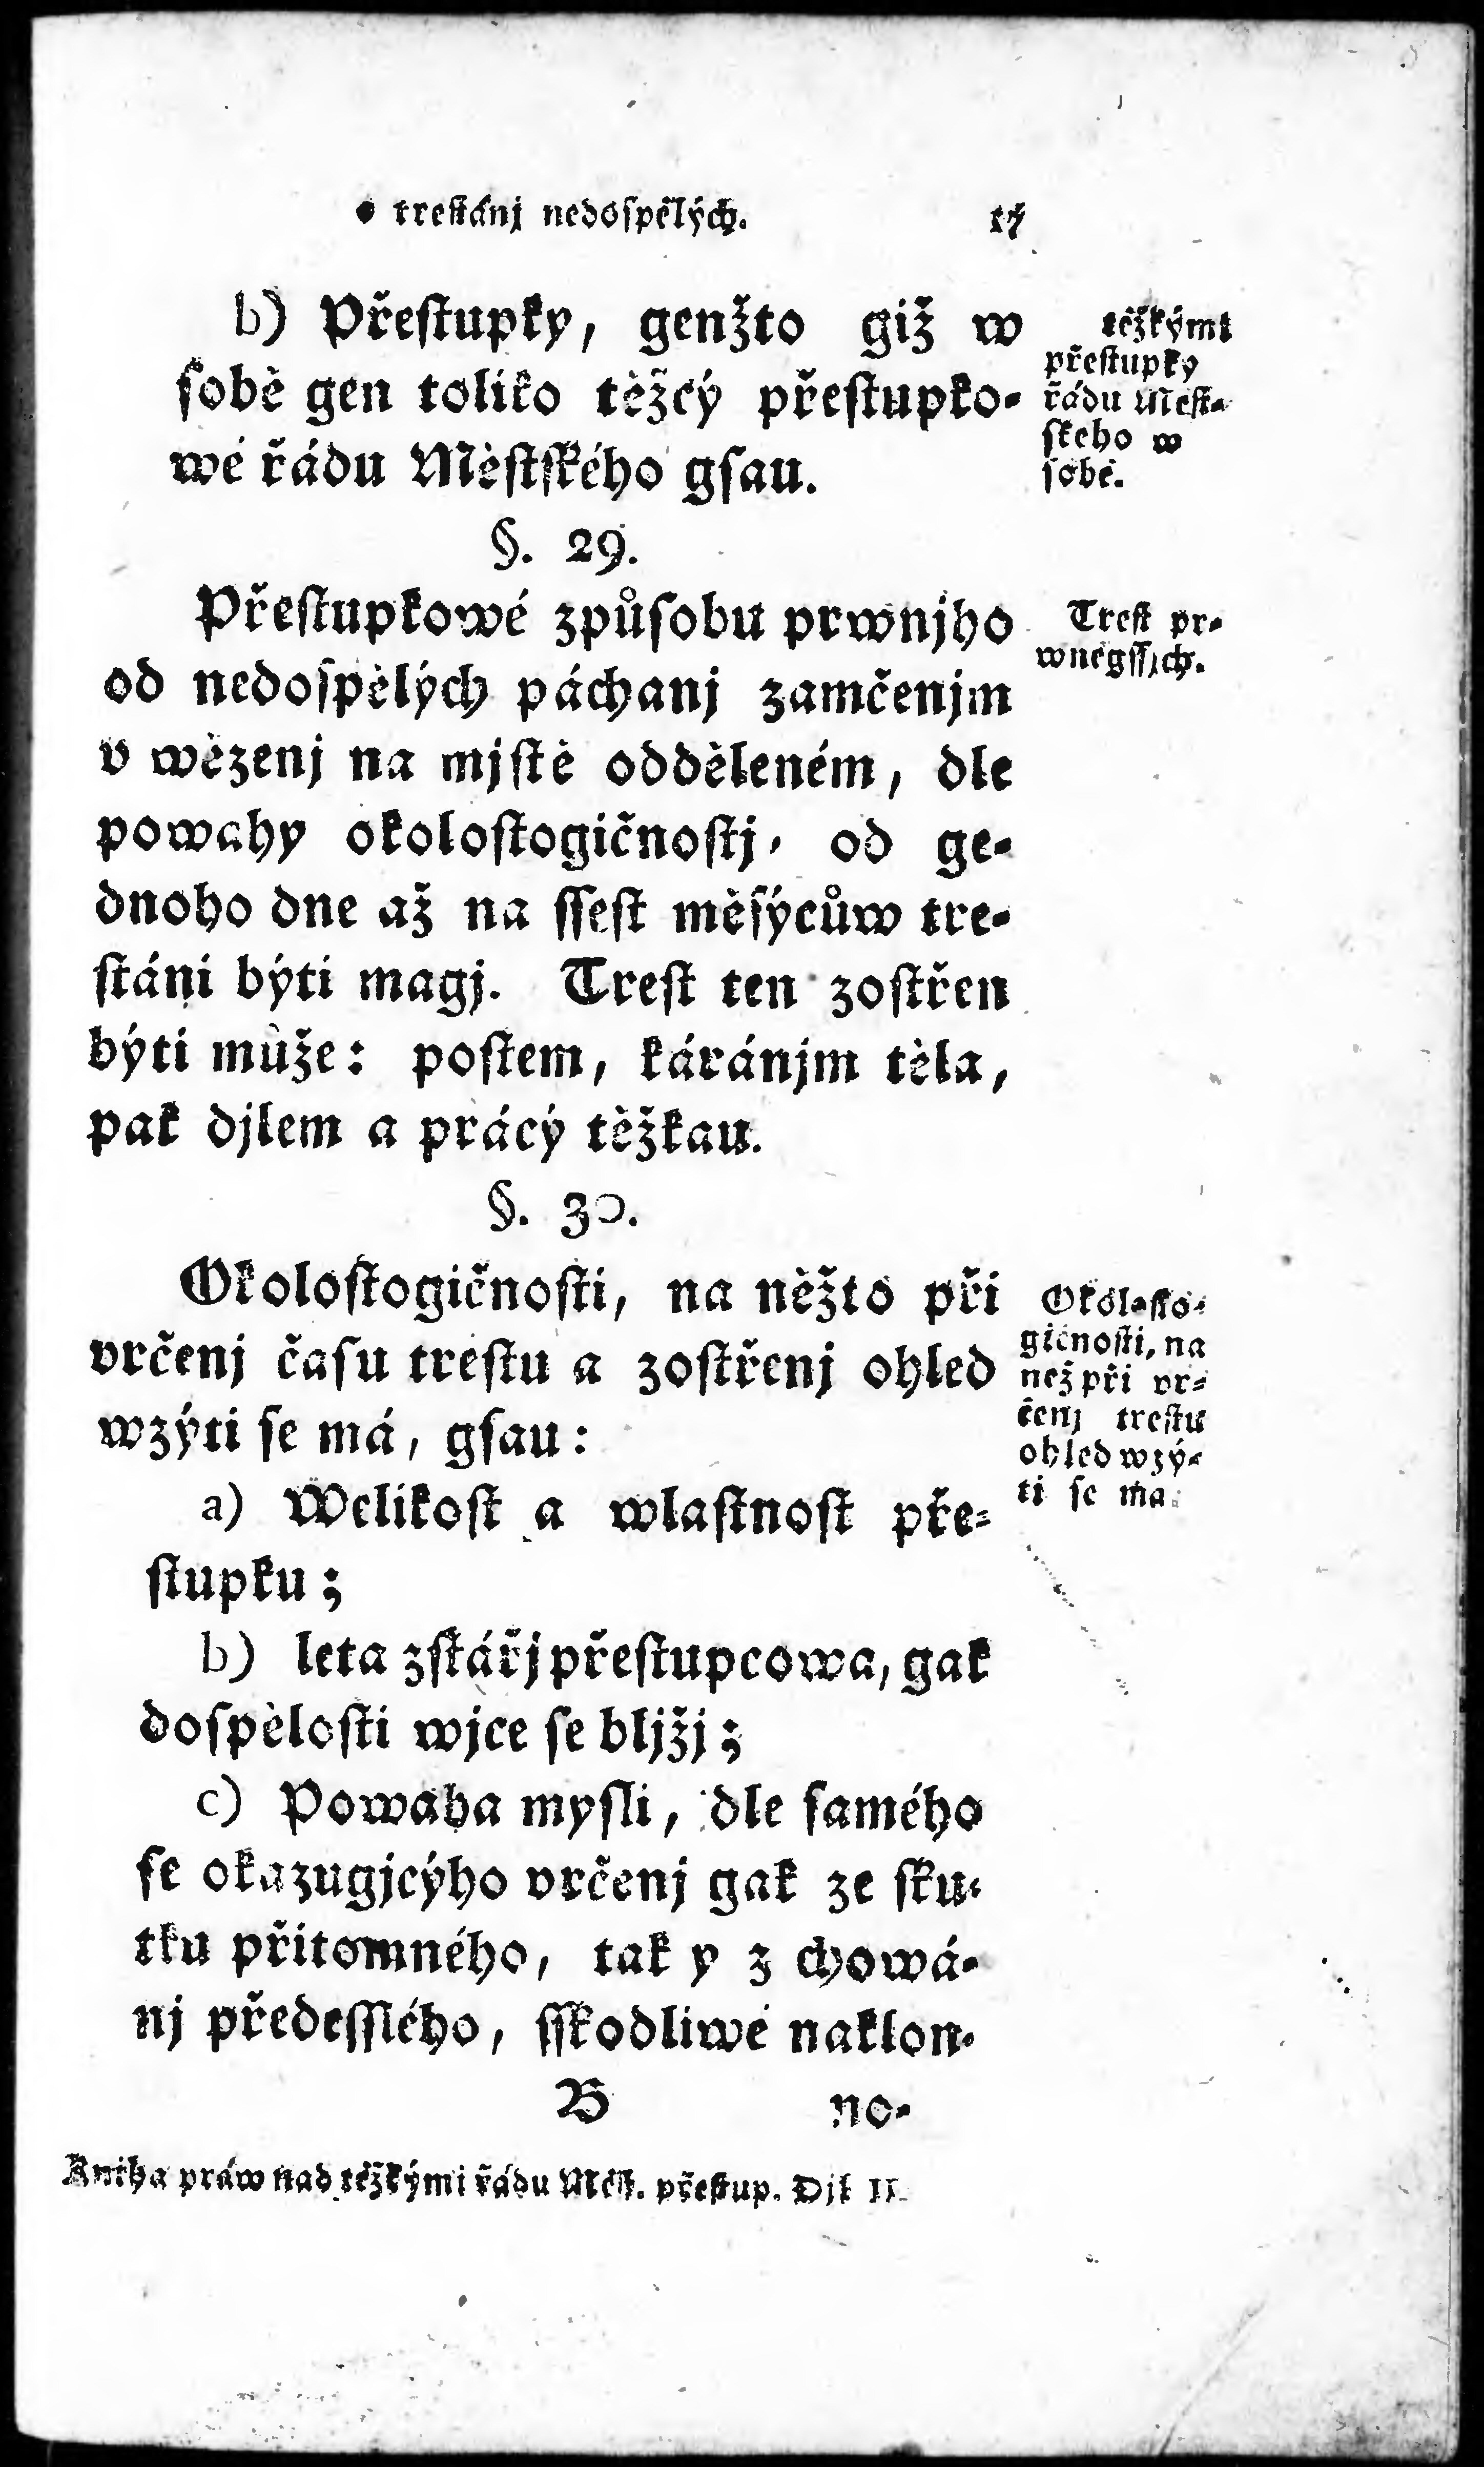 o trestánj nedospělých. 17
b) Přestupky, genžto giž w
sobě gen toliko těžcý přestupko-
wé řádu Městského gsau.
těžkými
přestupky
řádu Měst-
skeho w
sobě.
§. 29.
Přestupkowé způsobu prwnjho
od nedospělých páchanj zamčenjm
v wězenj na mjstě odděleném, dle
powahy okolostogičnostj, od ge-
dnoho dne až na ssest měsýcůw tre-
stáni býti magj. Trest ten zostřen
býti může: postem, káránjm těla,
pak djlem a prácý těžkau.
Trest pr-
wněgssjch.
§. 30.
Okolostogičnosti, na něžto při
vrčenj času trestu a zostřenj ohled
wzýti se má, gsau:
Okolosto-
gičnosti, na
něž při vr-
čenj trestu
ohled wzý-
ti se má.
a) Welikost a wlastnost pře-
stupku;
b) leta zstářj přestupcowa, gak
dospělosti wjce se bljžj;
c) Powaha mysli, dle samého
se okazugjcýho vrčenj gak ze sku-
tku přitomného, tak y z chowá-
nj předesslého, sskodliwé naklon-
B no-
Kniha práw nad těžkými řádu Měst. přestup. Djl II.